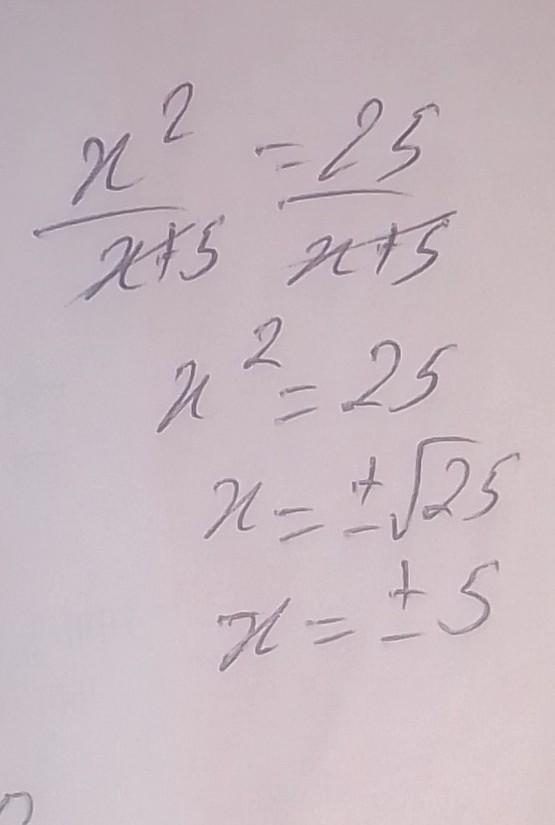 x² = 25
x+5 x+5
x² = 25
x = ±√25
x = ±5